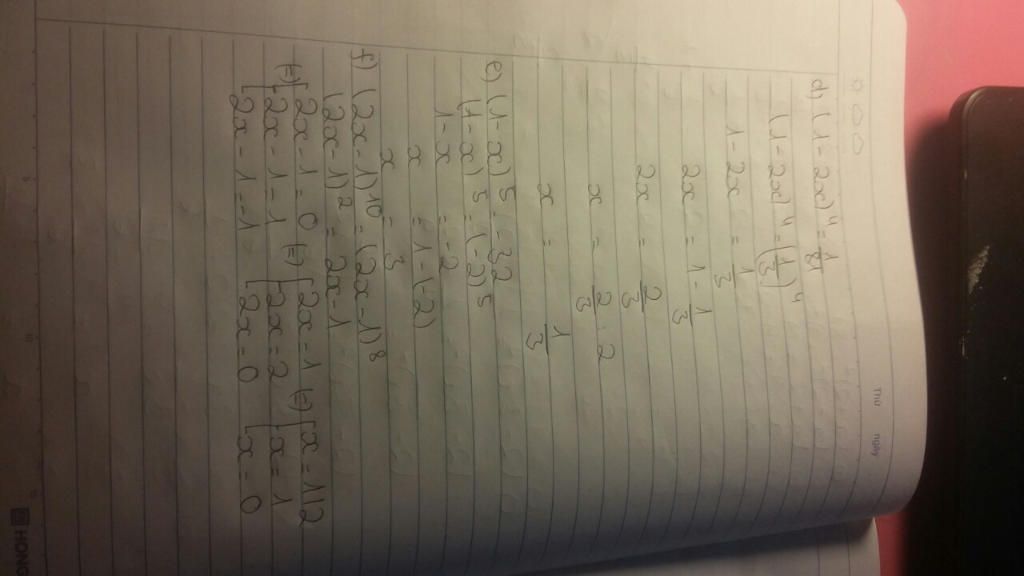 Thứ ngày
d) (1 - 2x)⁴ = 1/81
(1 - 2x)⁴ = (1/3)⁴
1 - 2x = 1/3
2x = 1 - 1/3
2x = 2/3
x = 2/3 . 2
x = 1/3
e) (1 - x)⁵ = -32
(1 - x)⁵ = (-2)⁵
1 - x = -2
x = 1 - (-2)
x = 3
f) (2x - 1)¹⁰ = (2x - 1)⁸
(2x - 1)² = 2x - 1
2x - 1 = 0 (=) [2x = 1 (=) [x = 1/2
(=) [2x - 1 = 1 [2x = 2 [x = 1
2x - 1 -1 [2x = 0 [x = 0
HONG